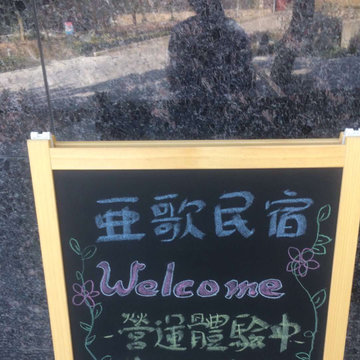 亜歌民宿
Welcome
-營運體驗中-